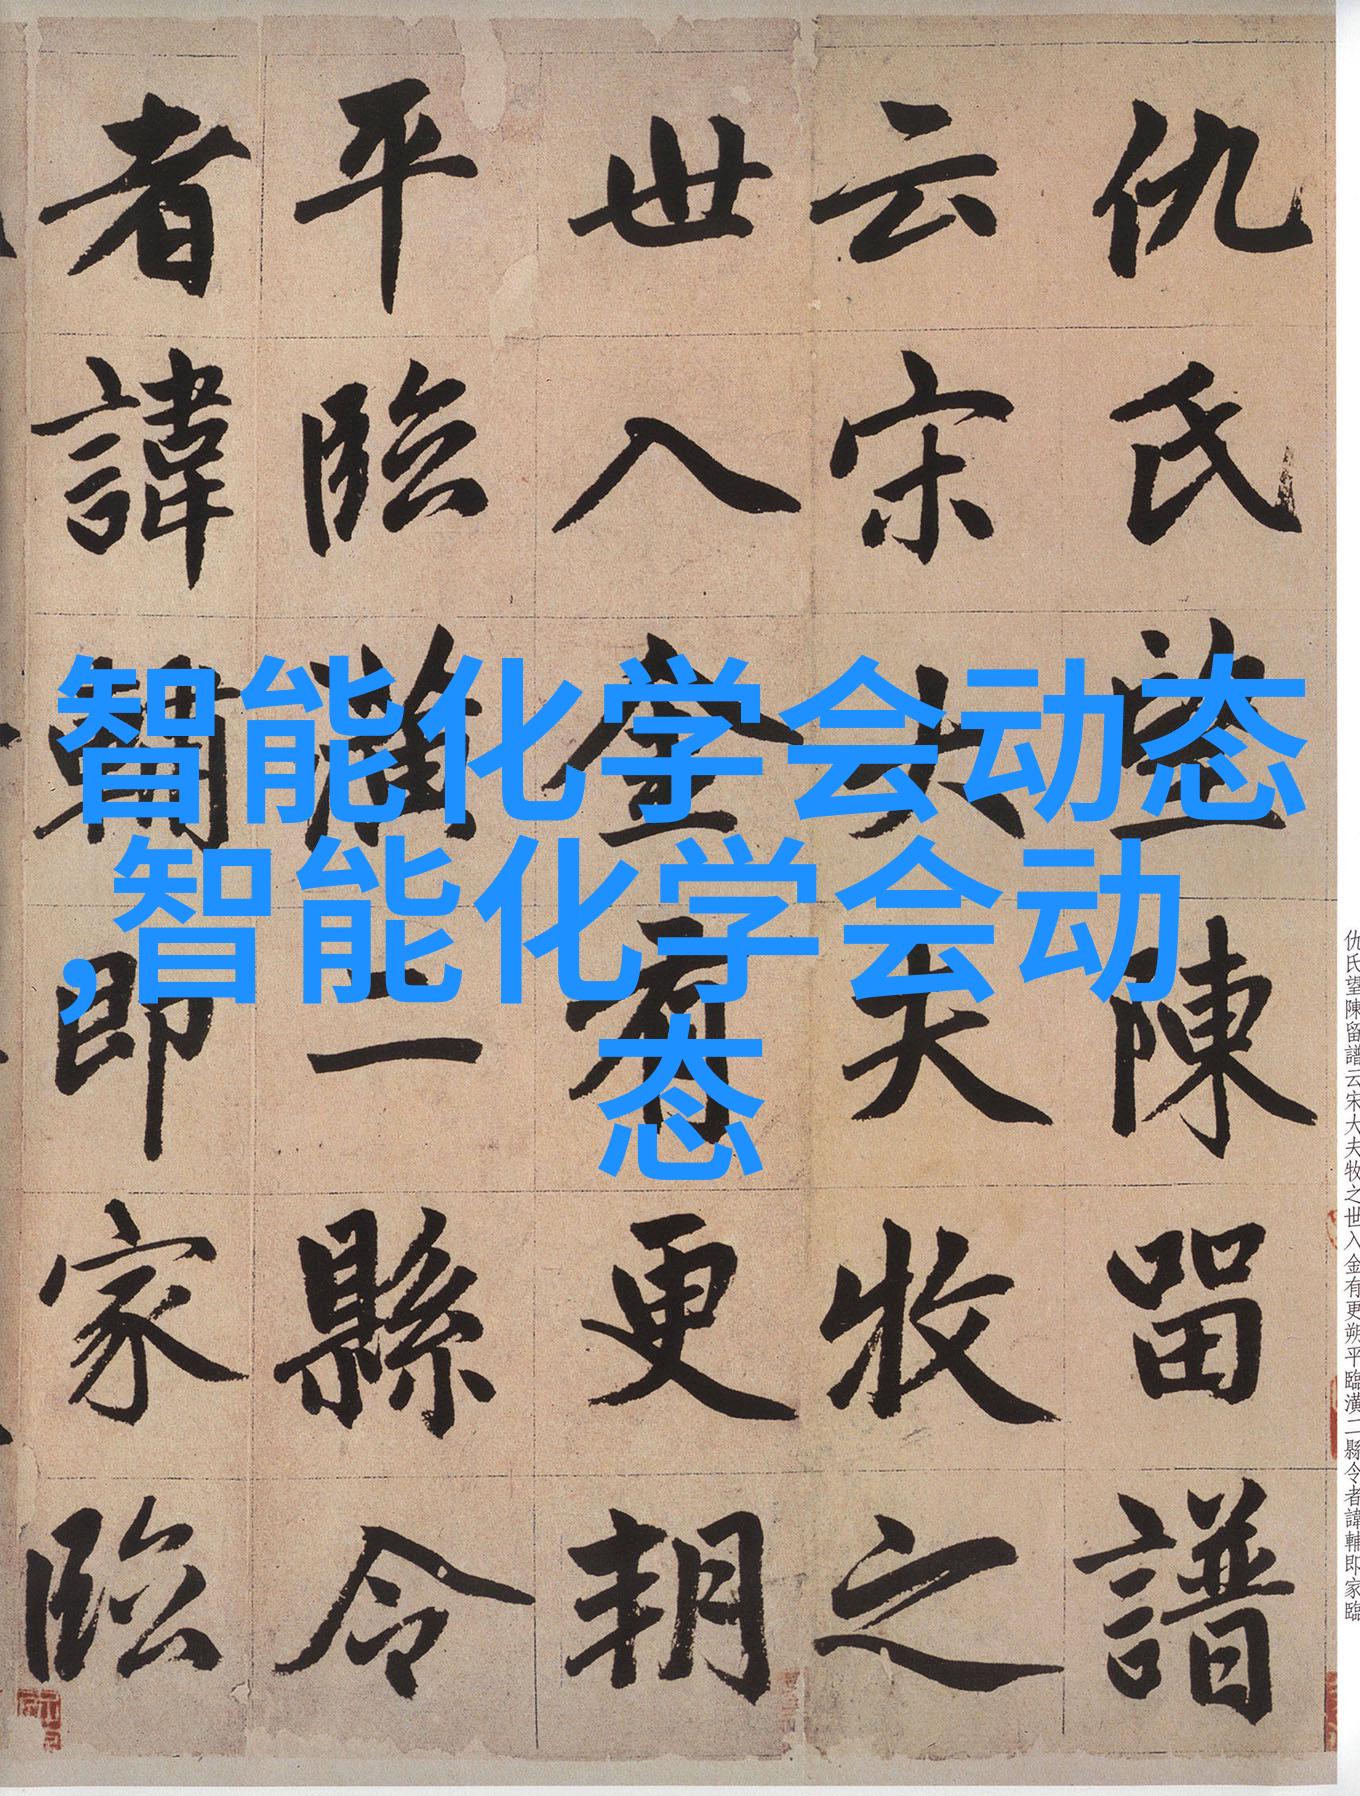 仇氏望陳留譜
云宋大夫牧之
世入金有更朔
平臨潢二縣令
者諱輔即家臨
智能化学会动态
,智能化学会动
态
仇氏望陳留譜云宋大夫牧之世入金有更朔平臨潢二縣令者諱輔即家臨